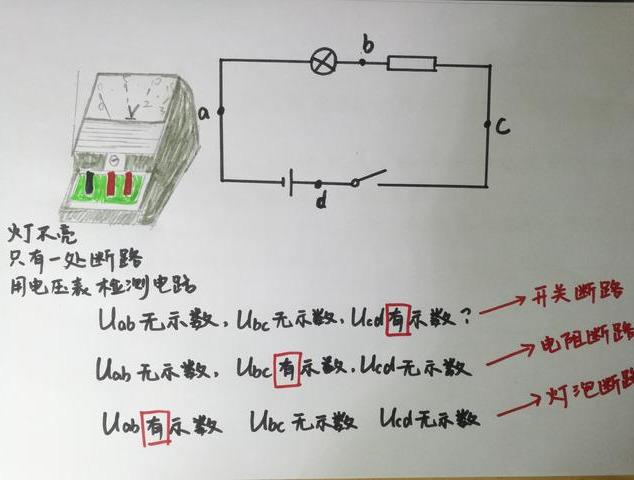 b
a
c
d
灯不亮
只有一处断路
用电压表检测电路
Uab无示数，Ubc无示数，Ucd有示数？ 开关断路
Uab无示数，Ubc有示数，Ucd无示数 电阻断路
Uab有示数 Ubc无示数 Ucd无示数 灯泡断路